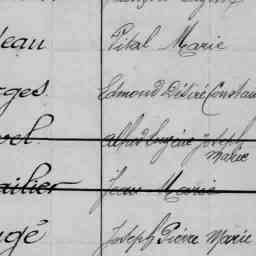 eau Vital Marie
ges Edmond Désiré Constan
vel Alfred Eugène Joseph
Marie
ailier Jean Marie
ugé Joseph Pierre Marie